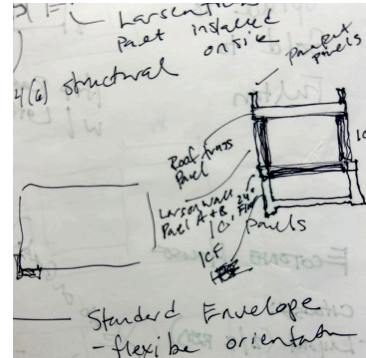 Larsen
Part installed
onsite
4(6) structural
Parapet
panels
Roof truss
Panel
Larsen wall
Panel A+B
24"
Floor
Panels
ICF
Standard Envelope
- flexibe orientation